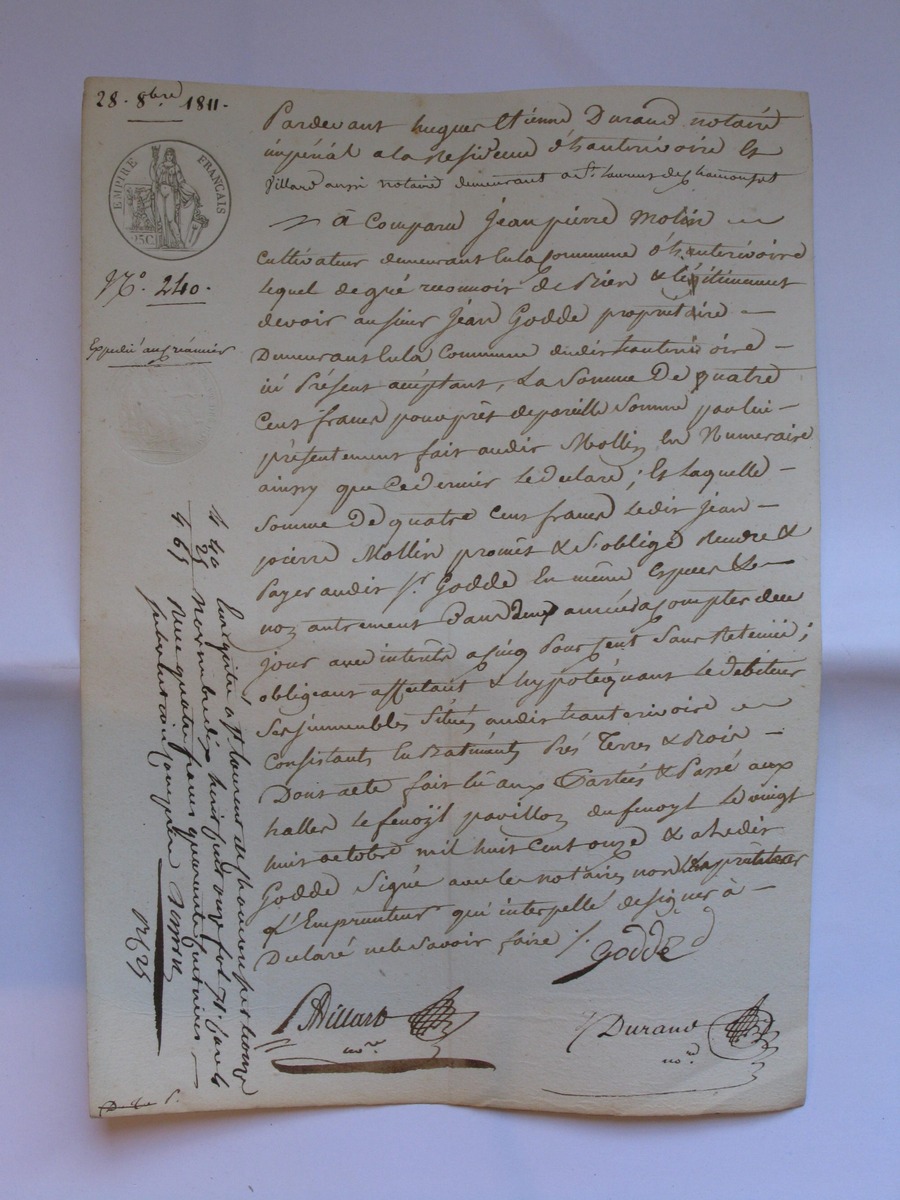 28. 8bre 1811.
EMPIRE FRANÇAIS
25C
N.o 240.
Expedié aux créancier
Pardevant hugues Etienne Durand notaire
impérial a la Residence d'hauterivoire Et
Villard aussi notaire demeurant a St. Laurent de Chamousset
à Comparu Jean pierre Molin
Cultivateur demeurant En la Commune d'hauterivoire
lequel de gré reconnoit de Bien & légitimement
devoir au sieur Jean Godde propriétaire
Demeurant En la Commune dudit hauterivoire
ici Présent acceptant, La Somme De quatre
Cent francs pour prêt de pareille Somme par lui
présentement fait audit Mollin En Numeraire
ainsy que Ce dernier Le declare; Et Laquelle
Somme De quatre Cent francs Ledit Jean
pierre Mollin promet & S'oblige Rendre &
Payer audit sr. Godde En même Especes &
non autrement Dans Deux années a Compter de ce
jour avec interets a cinq Pour Cent Sans Retenüe;
obligeant affectant & hypotéquant Le debiteur
Ses immeubles Situés audit hauterivoire
Consistants En Batiments Prés Terres & Bois
Dont acte fait Lû aux Parties & Passé aux
halles le fenoyl pavillon du fenoyl Le vingt
huit octobre mil huit Cent onze & a Ledit
Godde Signé avec les notaires non
L'Emprunteur qui interpellé de signer à
Déclaré ne le Savoir faire ./.
Godde
Villard
nore
Durand
nore
Enregistré a St. Laurent de chamousset le onze
novembre dix huit cent onze fol. 71
Reçu quatre francs quarante centimes
4 40
4 65